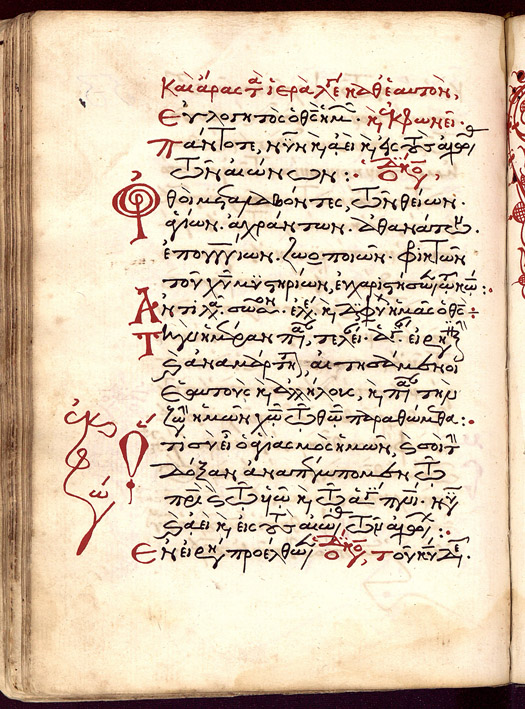 Καὶ ἄρας τὰ ἱερὰ λέγει καθ' ἑαυτὸν,
Εὐλογητὸς ὁ θεὸς ἡμῶν. κ(αὶ) ἐκφωνεῖ.
Πάντοτε, νῦν κ(αὶ) ἀεὶ κ(αὶ) εἰς τοὺς αἰῶ(νας)
τῶν αἰώνων: ὁ διάκο(νος),
Ὀρθοὶ μεταλαβόντες, τῶν θείων.
ἁγίων. ἀχράντων. ἀθανάτων.
ἐπουρανίων. ζωοποιῶν. φρικτῶν
τοῦ χῦ μυστηρίων, εὐχαριστήσωμεν τῶ κῶ:
Ἀντιλα(βοῦ). σῶσον. ἐλέη(σον) κ(αὶ) διαφύ(λαξον) ἡμᾶς ὁ θε(ὸς)
Τὴν ἡμέραν πᾶσαν, τελεί(αν). ἁγί(αν). εἰρηνικ(ὴν)
κ(αὶ) ἀναμάρτητ(ον), αἰτησάμενοι
Ἑαυτοὺς κ(αὶ) ἀλλήλους, κ(αὶ) πᾶσαν τὴν
ζωὴν ἡμῶν χῶ τῶ θῶ παραθώμεθα:
ἐκφω
Ὅτι σὺ εἶ ὁ ἁγιασμὸς ἡμῶν, κ(αὶ) σοὶ τὴν
δόξαν ἀναπέμπομεν τῶ
πρὶ κ(αὶ) τῶ υἱῶ κ(αὶ) τῶ ἁγί(ω) πνι. νῦν
κ(αὶ) ἀεὶ κ(αὶ) εἰς τοὺς αἰῶ(νας) τῶν αἰώ(νων):
Ἐν εἰρήνη προέλθω(μεν) ὁ διάκο(νος), τοῦ κῦ δε.